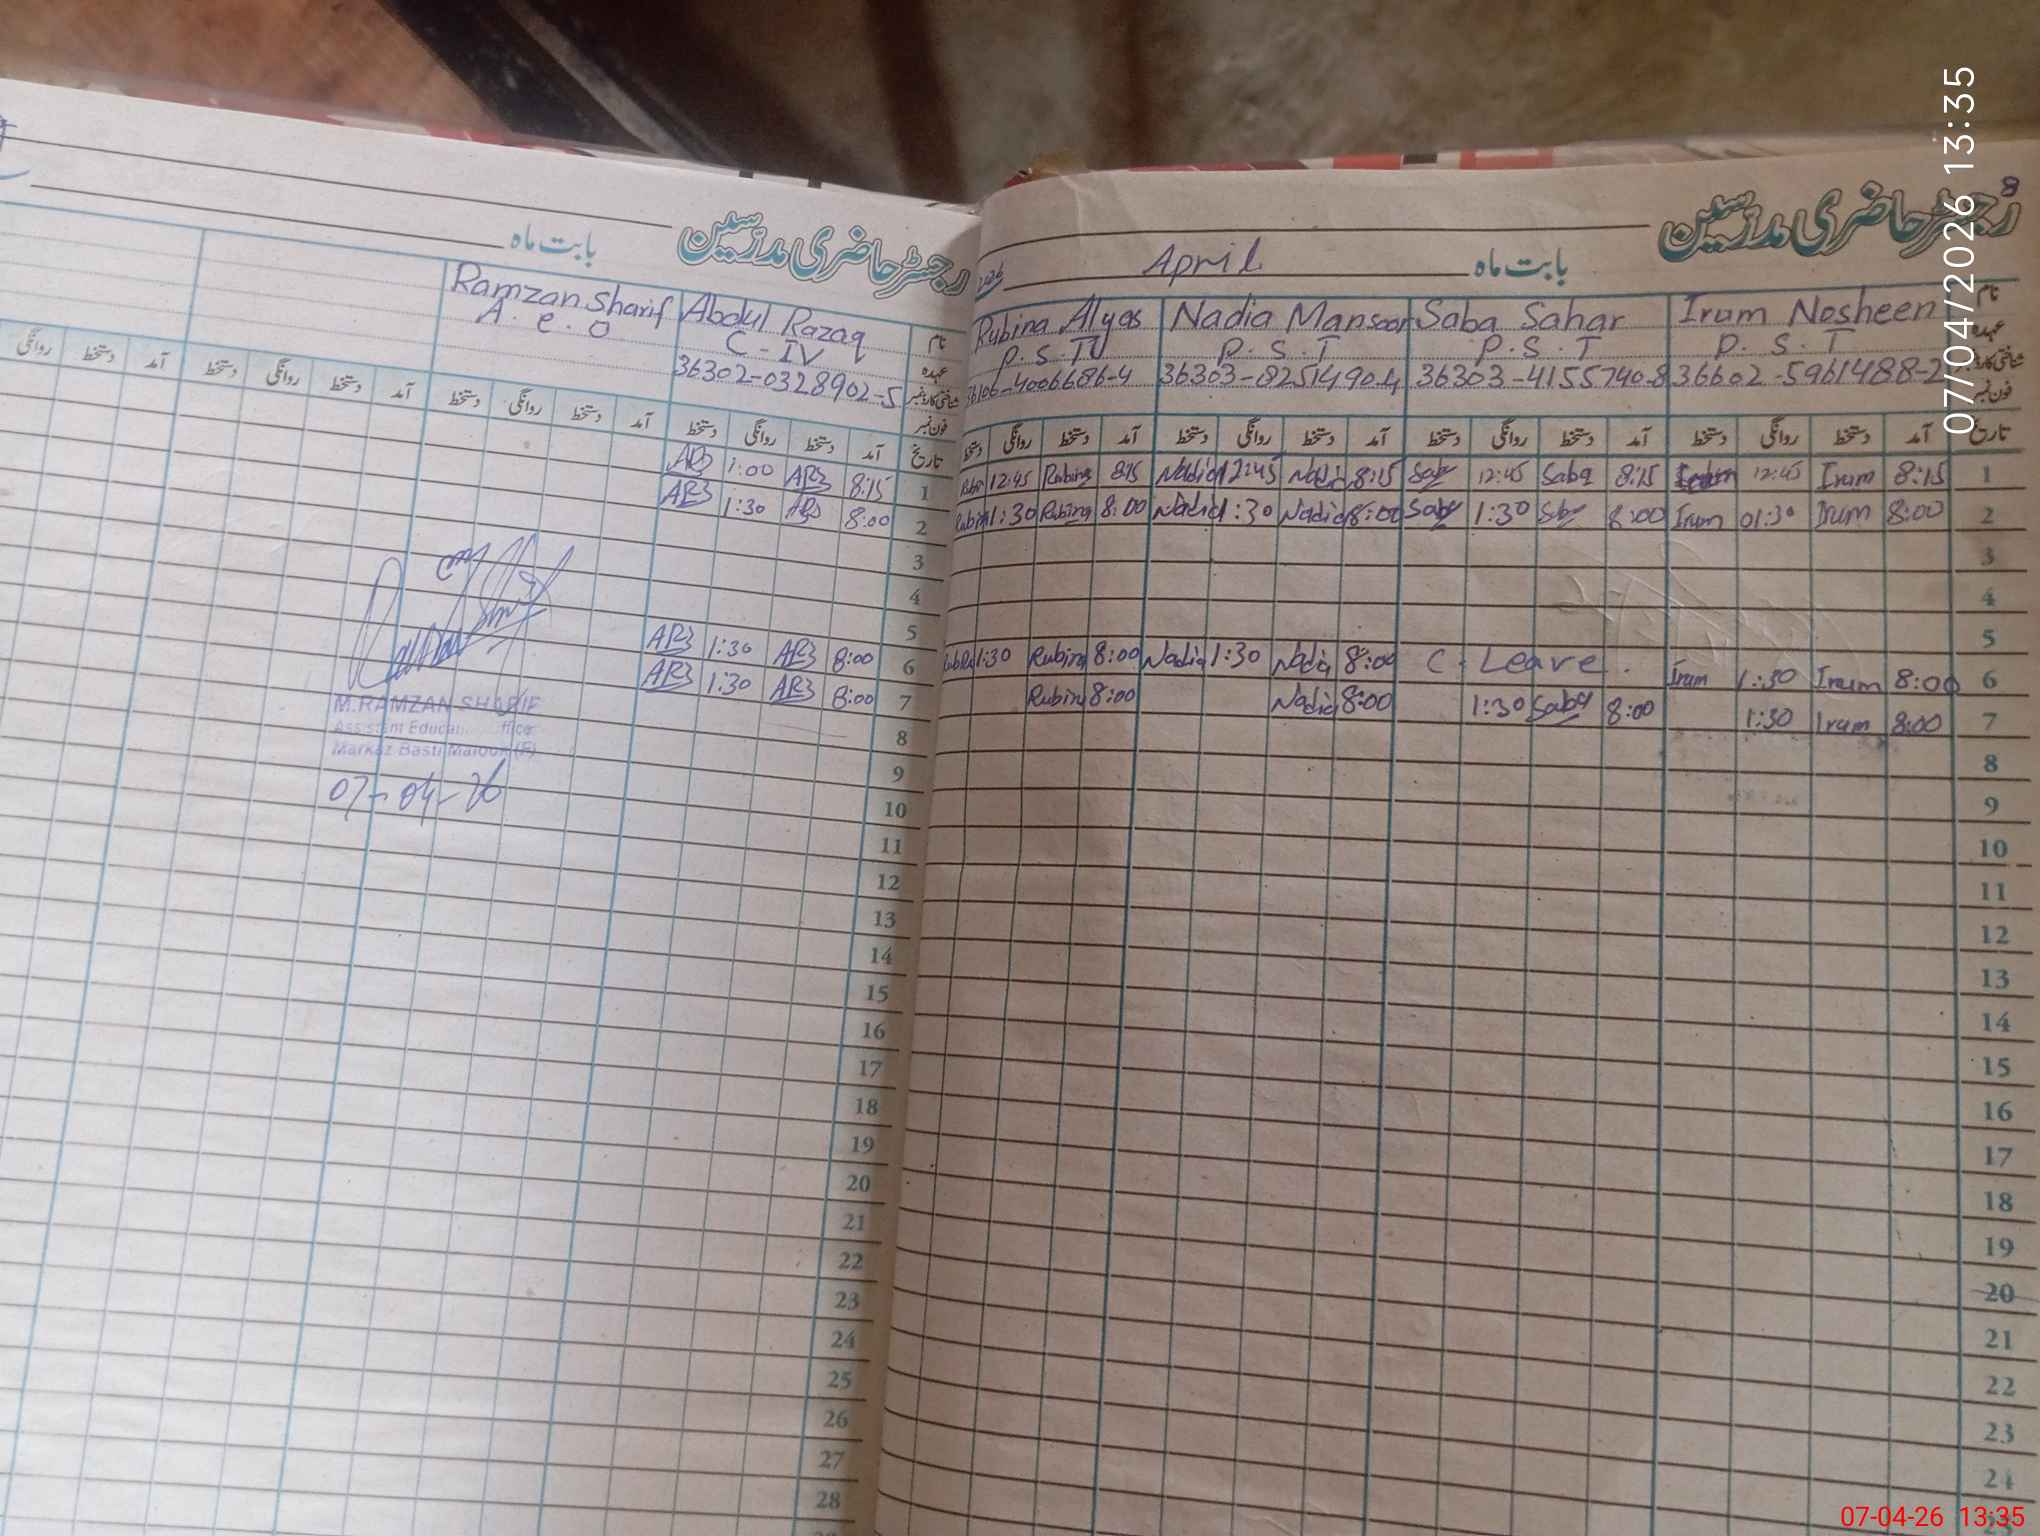 رجسٹر حاضری مدرسین
بابت ماہ
Ramzan Sharif
A. e. o
Abdul Razaq
C - IV
36302-0328902-5
نام
عہدہ
شناختی کارڈ نمبر
فون نمبر
روانگی دستخط آمد دستخط روانگی دستخط آمد دستخط روانگی دستخط آمد دستخط روانگی دستخط آمد تاریخ
AR3 1:00 AR3 8:15 1
AR3 1:30 AR3 8:00 2
3
4
5
AR3 1:30 AR3 8:00 6
AR3 1:30 AR3 8:00 7
M.RAMZAN SHARIF
Markaz Basti Malook (F)
07-04-26
8
9
10
11
12
13
14
15
16
17
18
19
20
21
22
23
24
25
26
27
28
8
رجسٹر حاضری مدرسین
بابت ماہ April 2026
Rubina Alyas Nadia Mansoor Saba Sahar Irum Nosheen نام
P. S. T P. S. T P. S. T P. S. T عہدہ
36303-4155740-8 36602-5961488-2 شناختی کارڈ نمبر
فون نمبر
دستخط روانگی دستخط آمد دستخط روانگی دستخط آمد دستخط روانگی دستخط آمد دستخط روانگی دستخط آمد تاریخ
Rubina 12:45 Rubina 8:15 Nadia 12:45 Nadia 8:15 Saba 12:45 Saba 8:15 12:45 Irum 8:15 1
Rubina 1:30 Rubina 8:00 Nadia 1:30 Nadia 8:00 Saba 1:30 Saba 8:00 Irum 01:30 Irum 8:00 2
3
4
5
Rubina 1:30 Rubina 8:00 Nadia 1:30 Nadia 8:00 C. Leave. Irum 1:30 Irum 8:00 6
Rubina 8:00 Nadia 8:00 1:30 Saba 8:00 1:30 Irum 8:00 7
8
9
10
11
12
13
14
15
16
17
18
19
20
21
22
23
24
07/04/2026 13:35
07-04-26 13:35